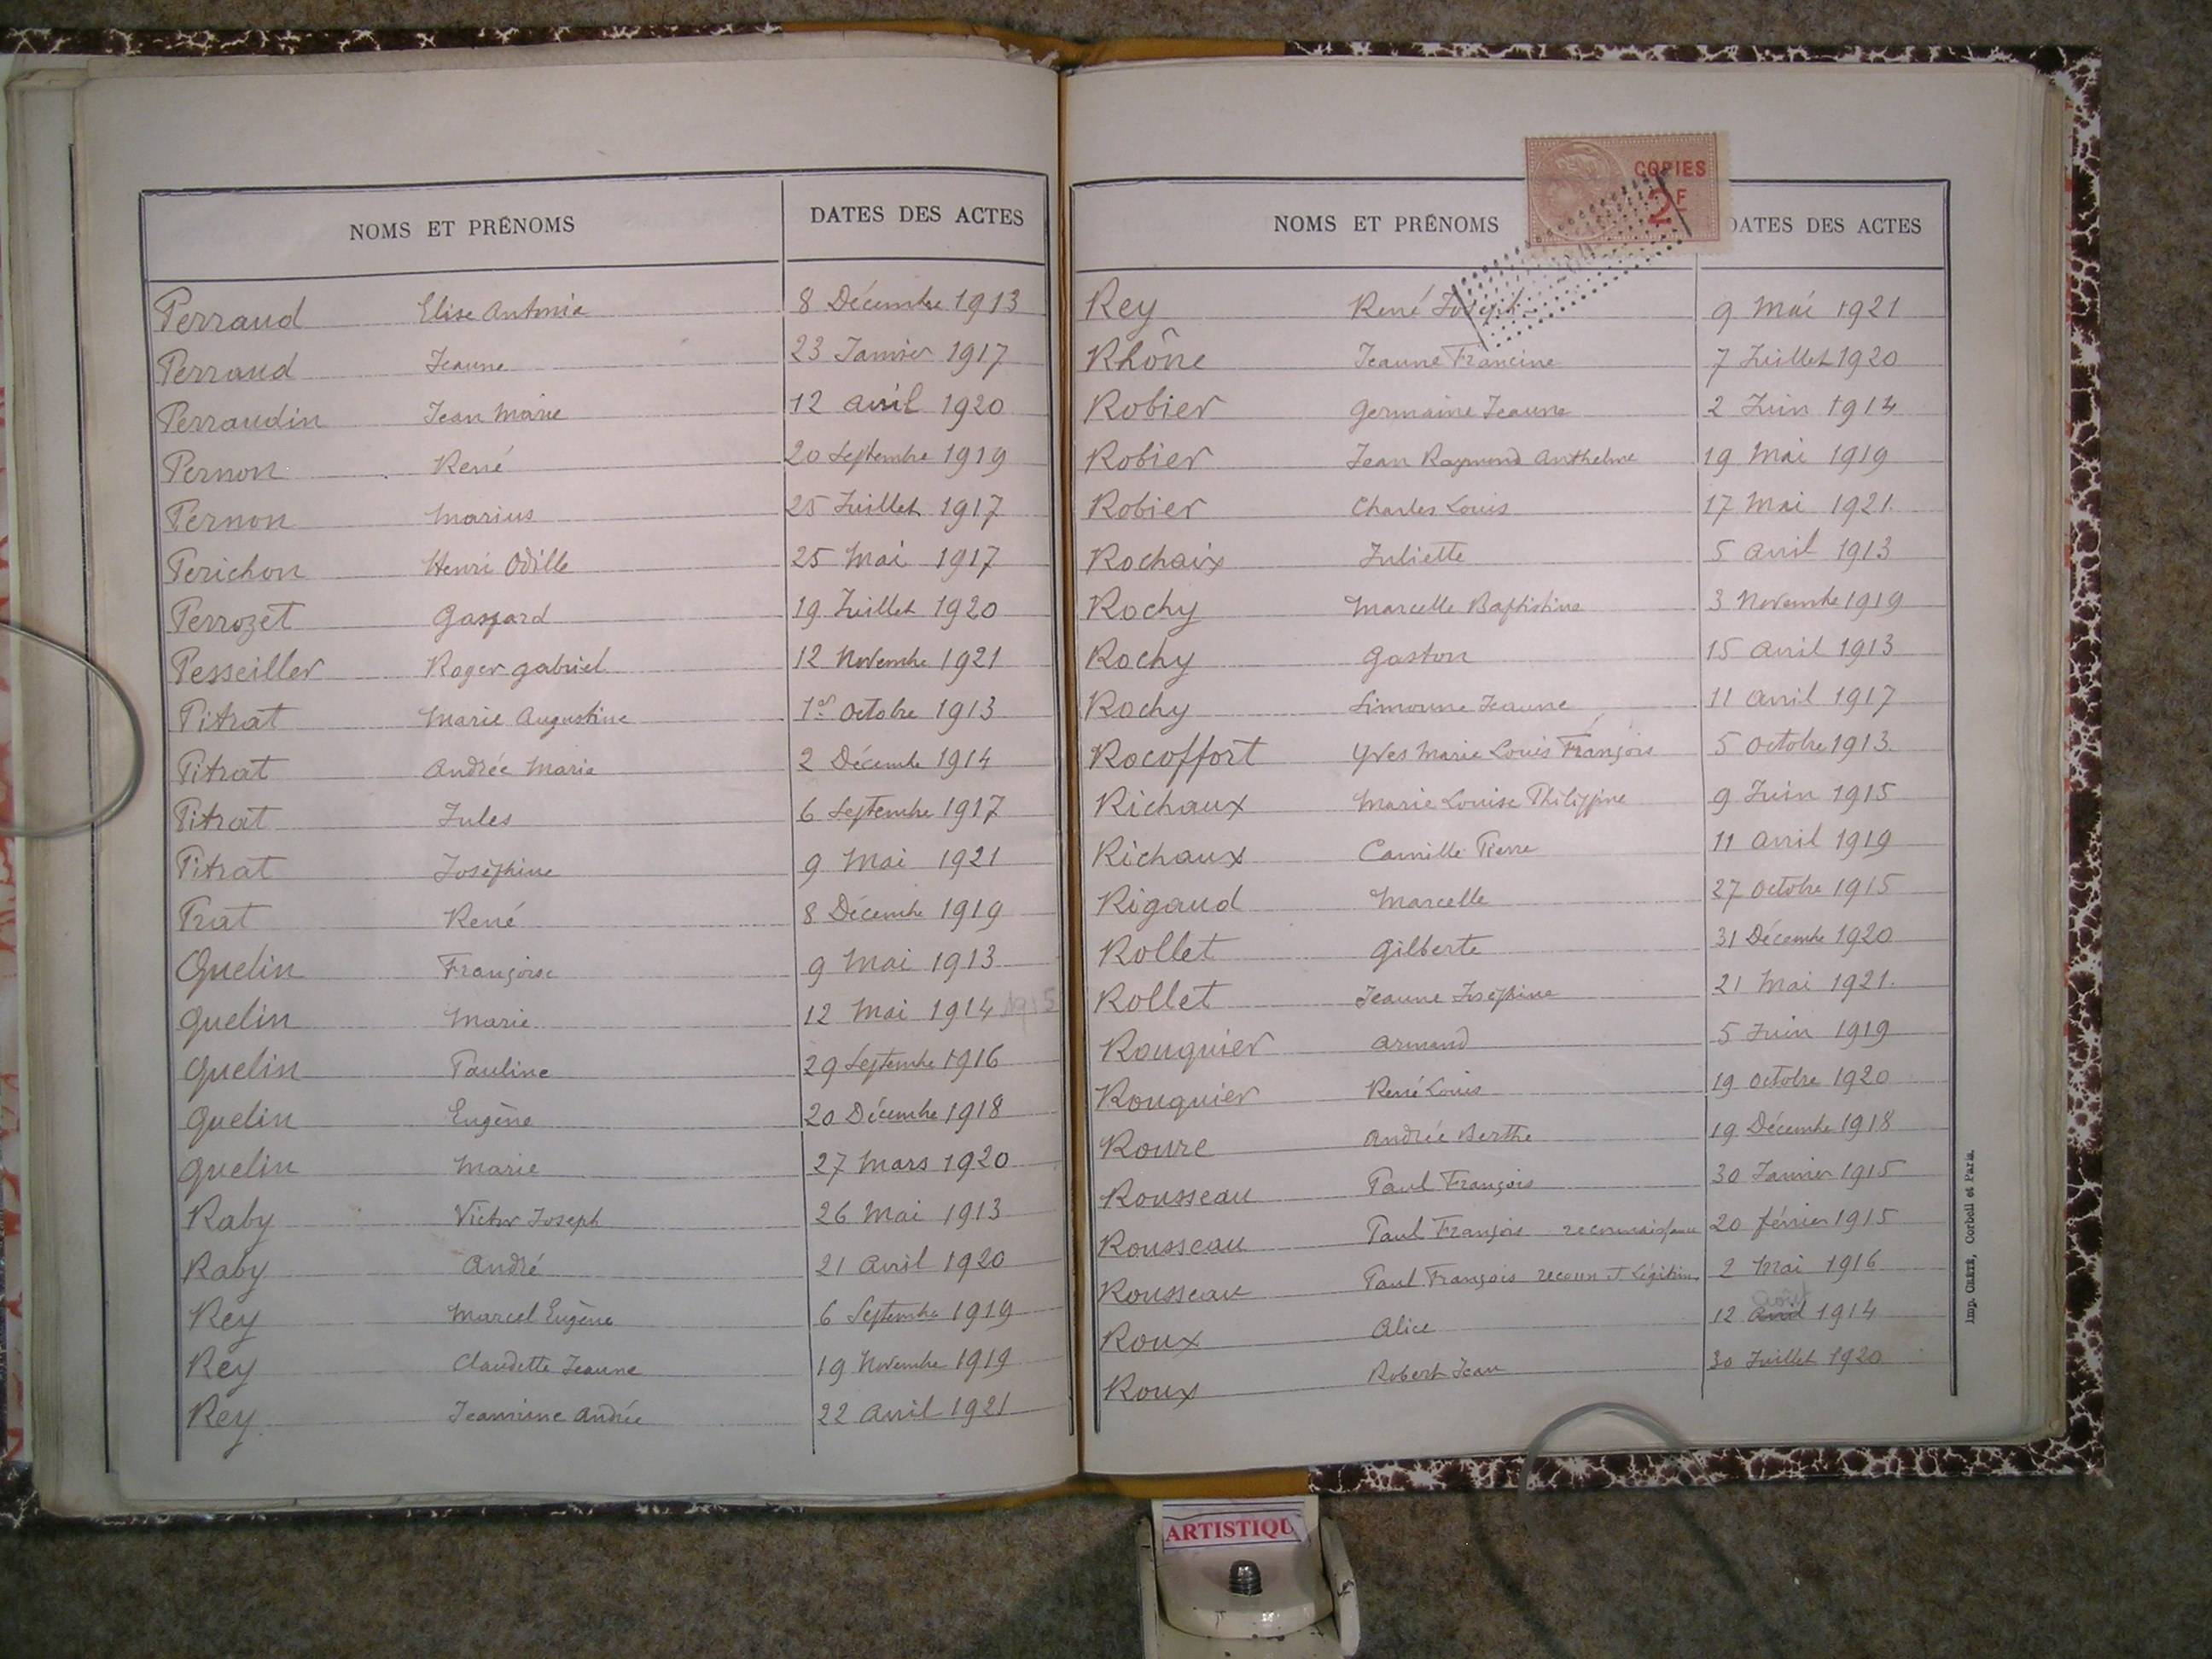 NOMS ET PRÉNOMS DATES DES ACTES
Perraud Elise Antonia 8 Décembre 1913
Perraud Jeanne 23 Janvier 1917
Perraudin Jean Marie 12 avril 1920
Pernon René 20 Septembre 1919
Pernon Marius 25 Juillet 1917
Perichon Henri Odille 25 Mai 1917
Perrozet Gaspard 19 Juillet 1920
Pesseiller Roger Gabriel 12 Novembre 1921
Pitrat Marie Augustine 1er Octobre 1913
Pitrat Andrée Marie 2 Décembre 1914
Pitrat Jules 6 Septembre 1917
Pitrat Joséphine 9 Mai 1921
Prat René 8 Décembre 1919
Quelin Françoise 9 Mai 1913
Quelin Marie 12 Mai 1914 1915
Quelin Pauline 29 Septembre 1916
Quelin Eugène 20 Décembre 1918
Quelin Marie 27 Mars 1920
Raby Victor Joseph 26 Mai 1913
Raby André 21 Avril 1920
Rey Marcel Eugène 6 Septembre 1919
Rey Claudette Jeanne 19 Novembre 1919
Rey Jeannine Andrée 22 Avril 1921
COPIES
2F
NOMS ET PRÉNOMS DATES DES ACTES
Rey René Joseph 9 Mai 1921
Rhône Jeanne Francine 7 Juillet 1920
Robier Germaine Jeanne 2 Juin 1914
Robier Jean Raymond Anthelme 19 Mai 1919
Robier Charles Louis 17 Mai 1921.
Rochaix Juliette 5 avril 1913
Rochy Marcelle Baptistine 3 Novembre 1919
Rochy Gaston 15 avril 1913
Rochy Simonne Jeanne 11 avril 1917
Rocoffort Yves Marie Louis François 5 Octobre 1913.
Richaux Marie Louise Philippine 9 Juin 1915
Richaux Camille Pierre 11 Avril 1919
Rigaud Marcelle 27 Octobre 1915
Rollet Gilberte 31 Décembre 1920
Rollet Jeanne Joséphine 21 Mai 1921.
Rouquier Armand 5 Juin 1919
Rouquier René Louis 19 Octobre 1920
Roure Andrée Berthe 19 Décembre 1918
Rousseau Paul François 30 Janvier 1915
Rousseau Paul François reconnaissance 20 février 1915
Rousseau Paul François reconn et Légitim 2 Mai 1916
août
Roux Alice 12 Avril 1914
Roux Robert Jean 30 Juillet 1920
Imp. CRÉTÉ, Corbeil et Paris.
ARTISTIQU